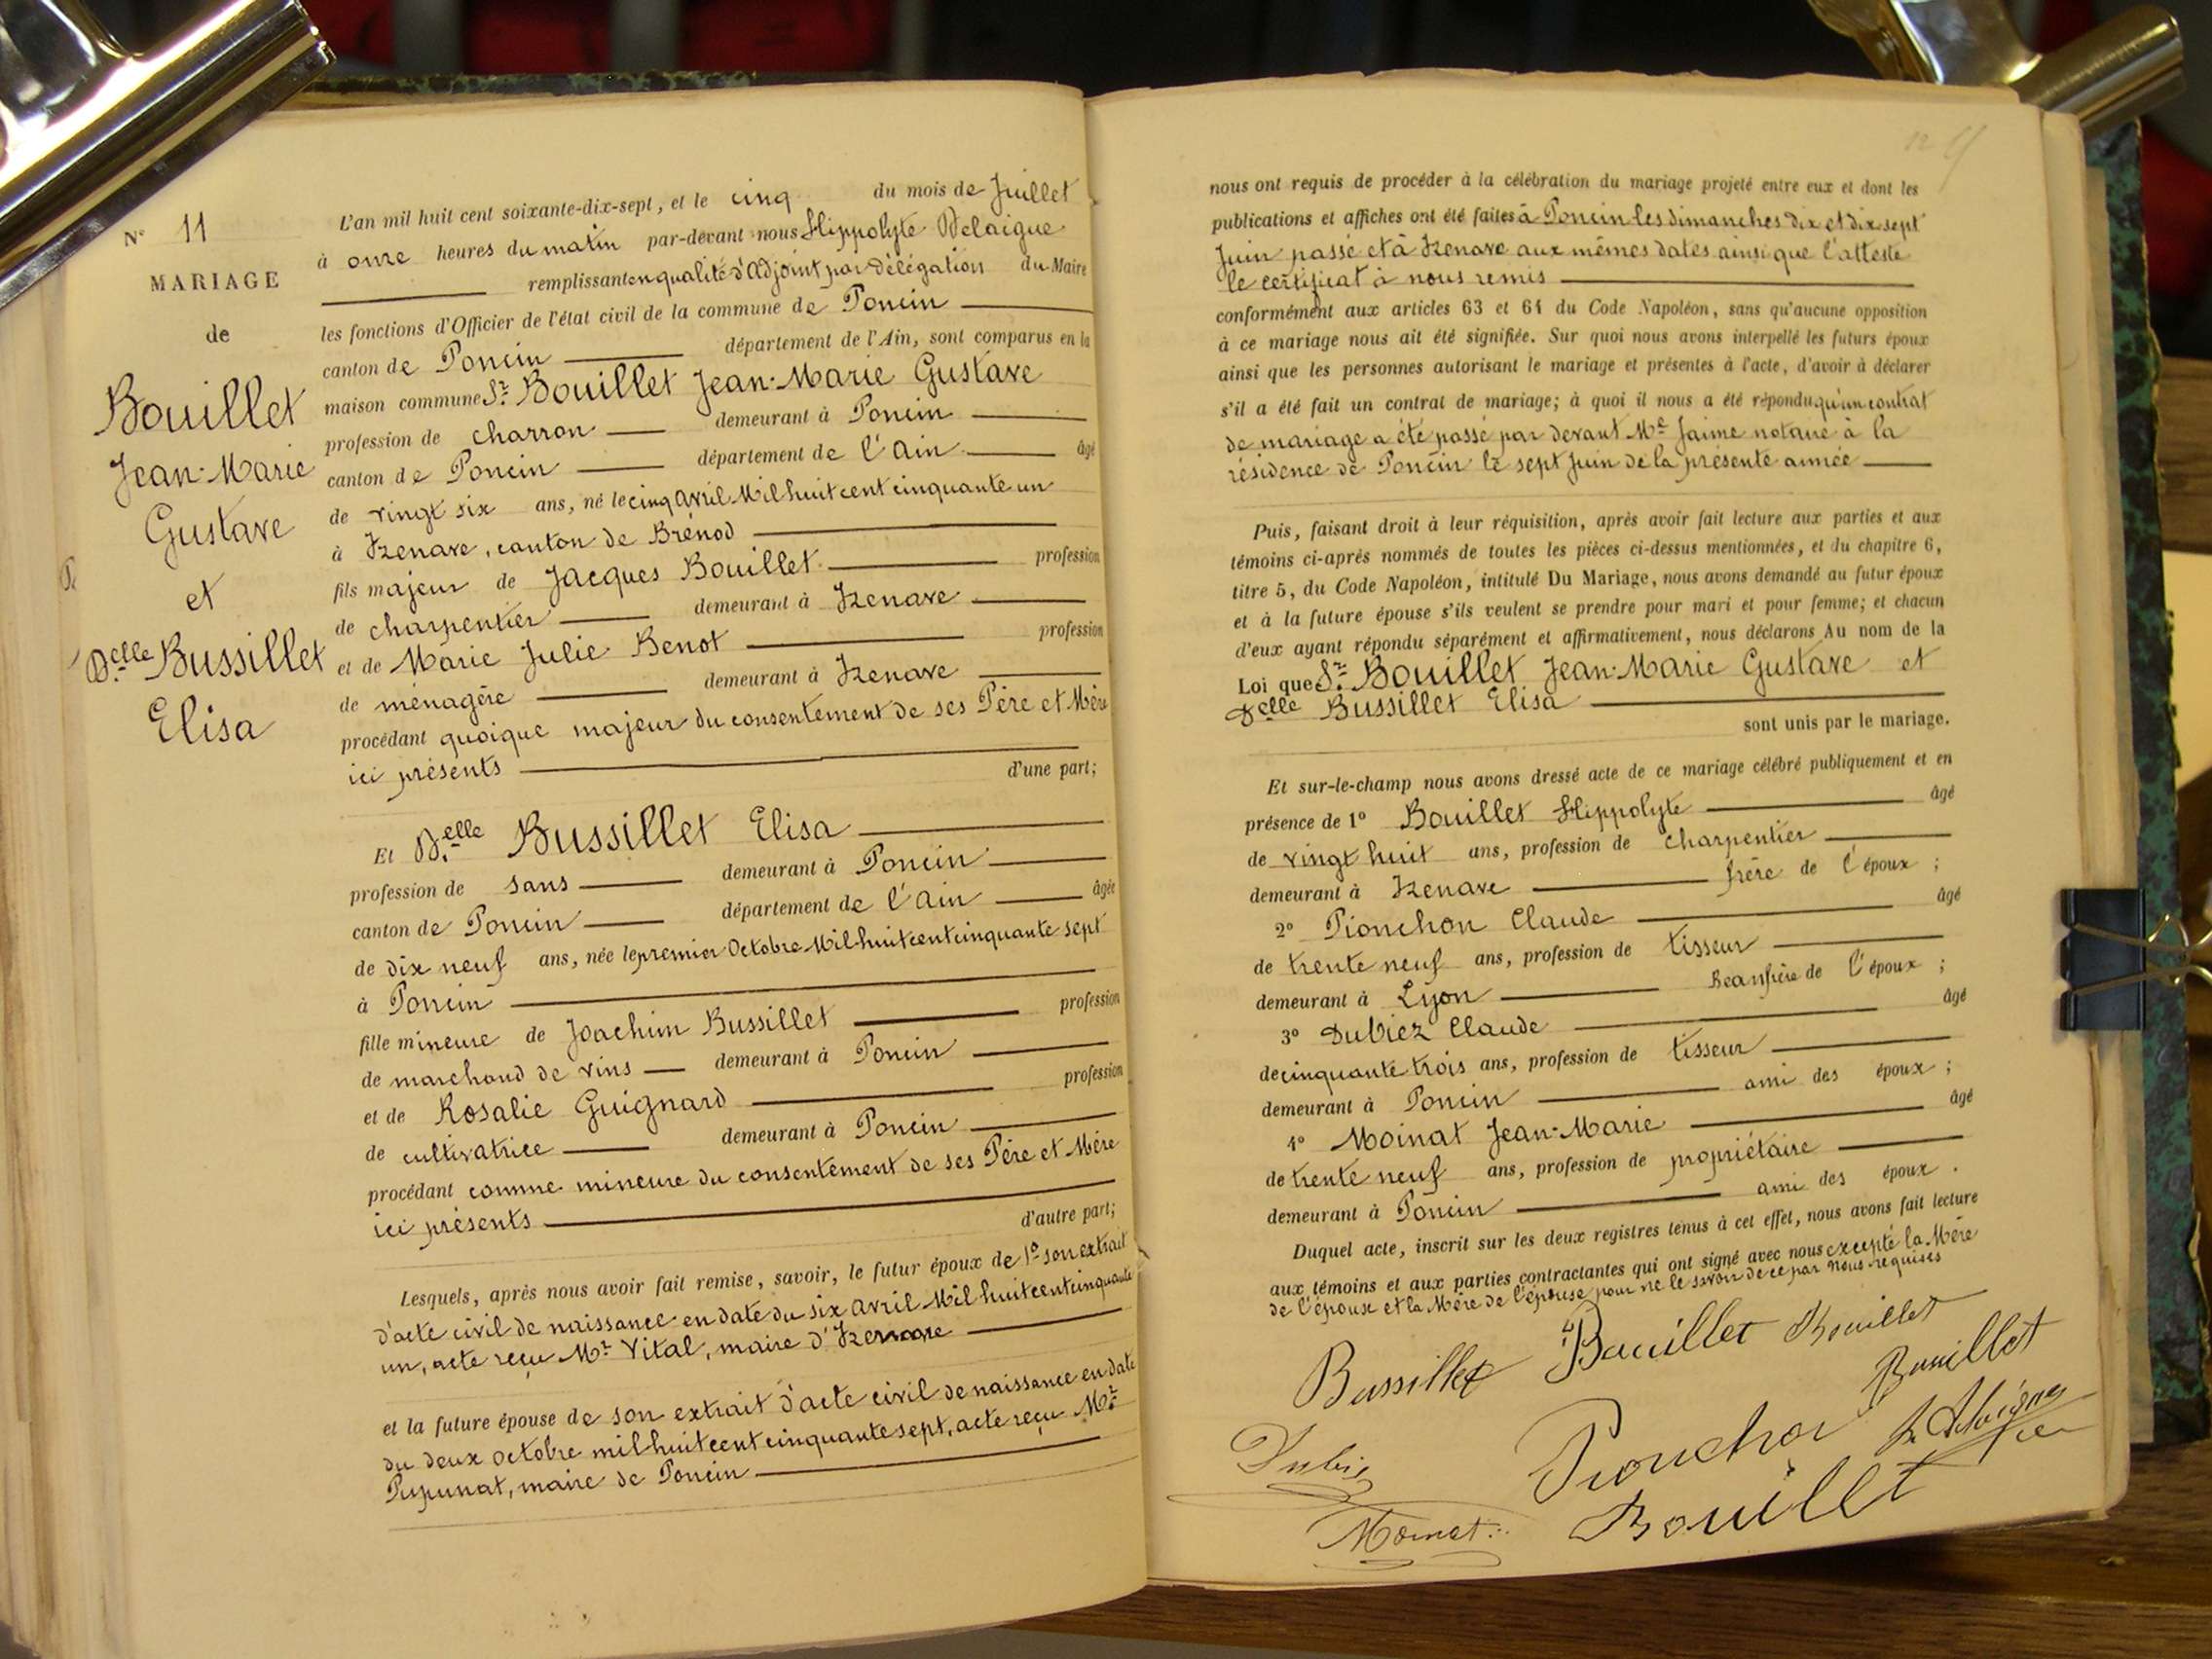 N° 11
MARIAGE
de
Bouillet
Jean-Marie
Gustave
et
Delle Bussillet
Elisa
L'an mil huit cent soixante-dix-sept, et le cinq du mois de Juillet
à onze heures du matin par-devant nous Hippolyte Delaigue
remplissant en qualité d'Adjoint par Délégation du Maire
les fonctions d'Officier de l'état civil de la commune de Poncin
canton de Poncin département de l'Ain, sont comparus en la
maison commune Sr Bouillet Jean-Marie Gustave
profession de charron demeurant à Poncin
canton de Poncin département de l'Ain âgé
de vingt six ans, né le cinq avril Mil huit cent cinquante un
à Izenave, canton de Brénod
fils majeur de Jacques Bouillet profession
de charpentier demeurant à Izenave
et de Marie Julie Benot profession
de ménagère demeurant à Izenave
procédant quoique majeur du consentement de ses Père et Mère
ici présents d'une part;
Et Delle Bussillet Elisa
profession de sans demeurant à Poncin
canton de Poncin département de l'Ain âgée
de dix neuf ans, née le premier Octobre Mil huit cent cinquante sept
à Poncin
fille mineure de Joachim Bussillet profession
de marchand de vins demeurant à Poncin
et de Rosalie Guignard profession
de cultivatrice demeurant à Poncin
procédant comme mineure du consentement de ses Père et Mère
ici présents d'autre part;
Lesquels, après nous avoir fait remise, savoir, le futur époux de 1° son extrait
d'acte civil de naissance en date du six avril Mil huit cent cinquante
un, acte reçu Mr Vital, maire d'Izenave
et la future épouse de son extrait d'acte civil de naissance en date
du deux octobre mil huit cent cinquante sept, acte reçu Mr
Pupunat, maire de Poncin
nous ont requis de procéder à la célébration du mariage projeté entre eux et dont les
publications et affiches ont été faites à Poncin les dimanches dix et dix sept
Juin passé et à Izenave aux mêmes dates ainsi que l'atteste
le certificat à nous remis
conformément aux articles 63 et 64 du Code Napoléon, sans qu'aucune opposition
à ce mariage nous ait été signifiée. Sur quoi nous avons interpellé les futurs époux
ainsi que les personnes autorisant le mariage et présentes à l'acte, d'avoir à déclarer
s'il a été fait un contrat de mariage; à quoi il nous a été répondu qu'un contrat
de mariage a été passé par devant Me Jaime notaire à la
résidence de Poncin le sept juin de la présente année
Puis, faisant droit à leur réquisition, après avoir fait lecture aux parties et aux
témoins ci-après nommés de toutes les pièces ci-dessus mentionnées, et du chapitre 6,
titre 5, du Code Napoléon, intitulé Du Mariage, nous avons demandé au futur époux
et à la future épouse s'ils veulent se prendre pour mari et pour femme; et chacun
d'eux ayant répondu séparément et affirmativement, nous déclarons Au nom de la
Loi que Sr Bouillet Jean-Marie Gustave et
Delle Bussillet Elisa
sont unis par le mariage.
Et sur-le-champ nous avons dressé acte de ce mariage célébré publiquement et en
présence de 1° Bouillet Hippolyte âgé
de vingt huit ans, profession de charpentier
demeurant à Izenave frère de l'époux ;
2° Pionchon Claude âgé
de trente neuf ans, profession de tisseur
demeurant à Lyon Beaufrère de l'époux ;
3° Dubiez Claude âgé
de cinquante trois ans, profession de tisseur
demeurant à Poncin ami des époux ;
4° Moinat Jean-Marie âgé
de trente neuf ans, profession de propriétaire
demeurant à Poncin ami des époux .
Duquel acte, inscrit sur les deux registres tenus à cet effet, nous avons fait lecture
aux témoins et aux parties contractantes qui ont signé avec nous excepté la Mère
de l'époux et la Mère de l'épouse pour ne le savoir de ce par nous requises
Bussillet Bouillet Bouillet
Bouillet
Dubiez Pionchon
Moinat Bouillet